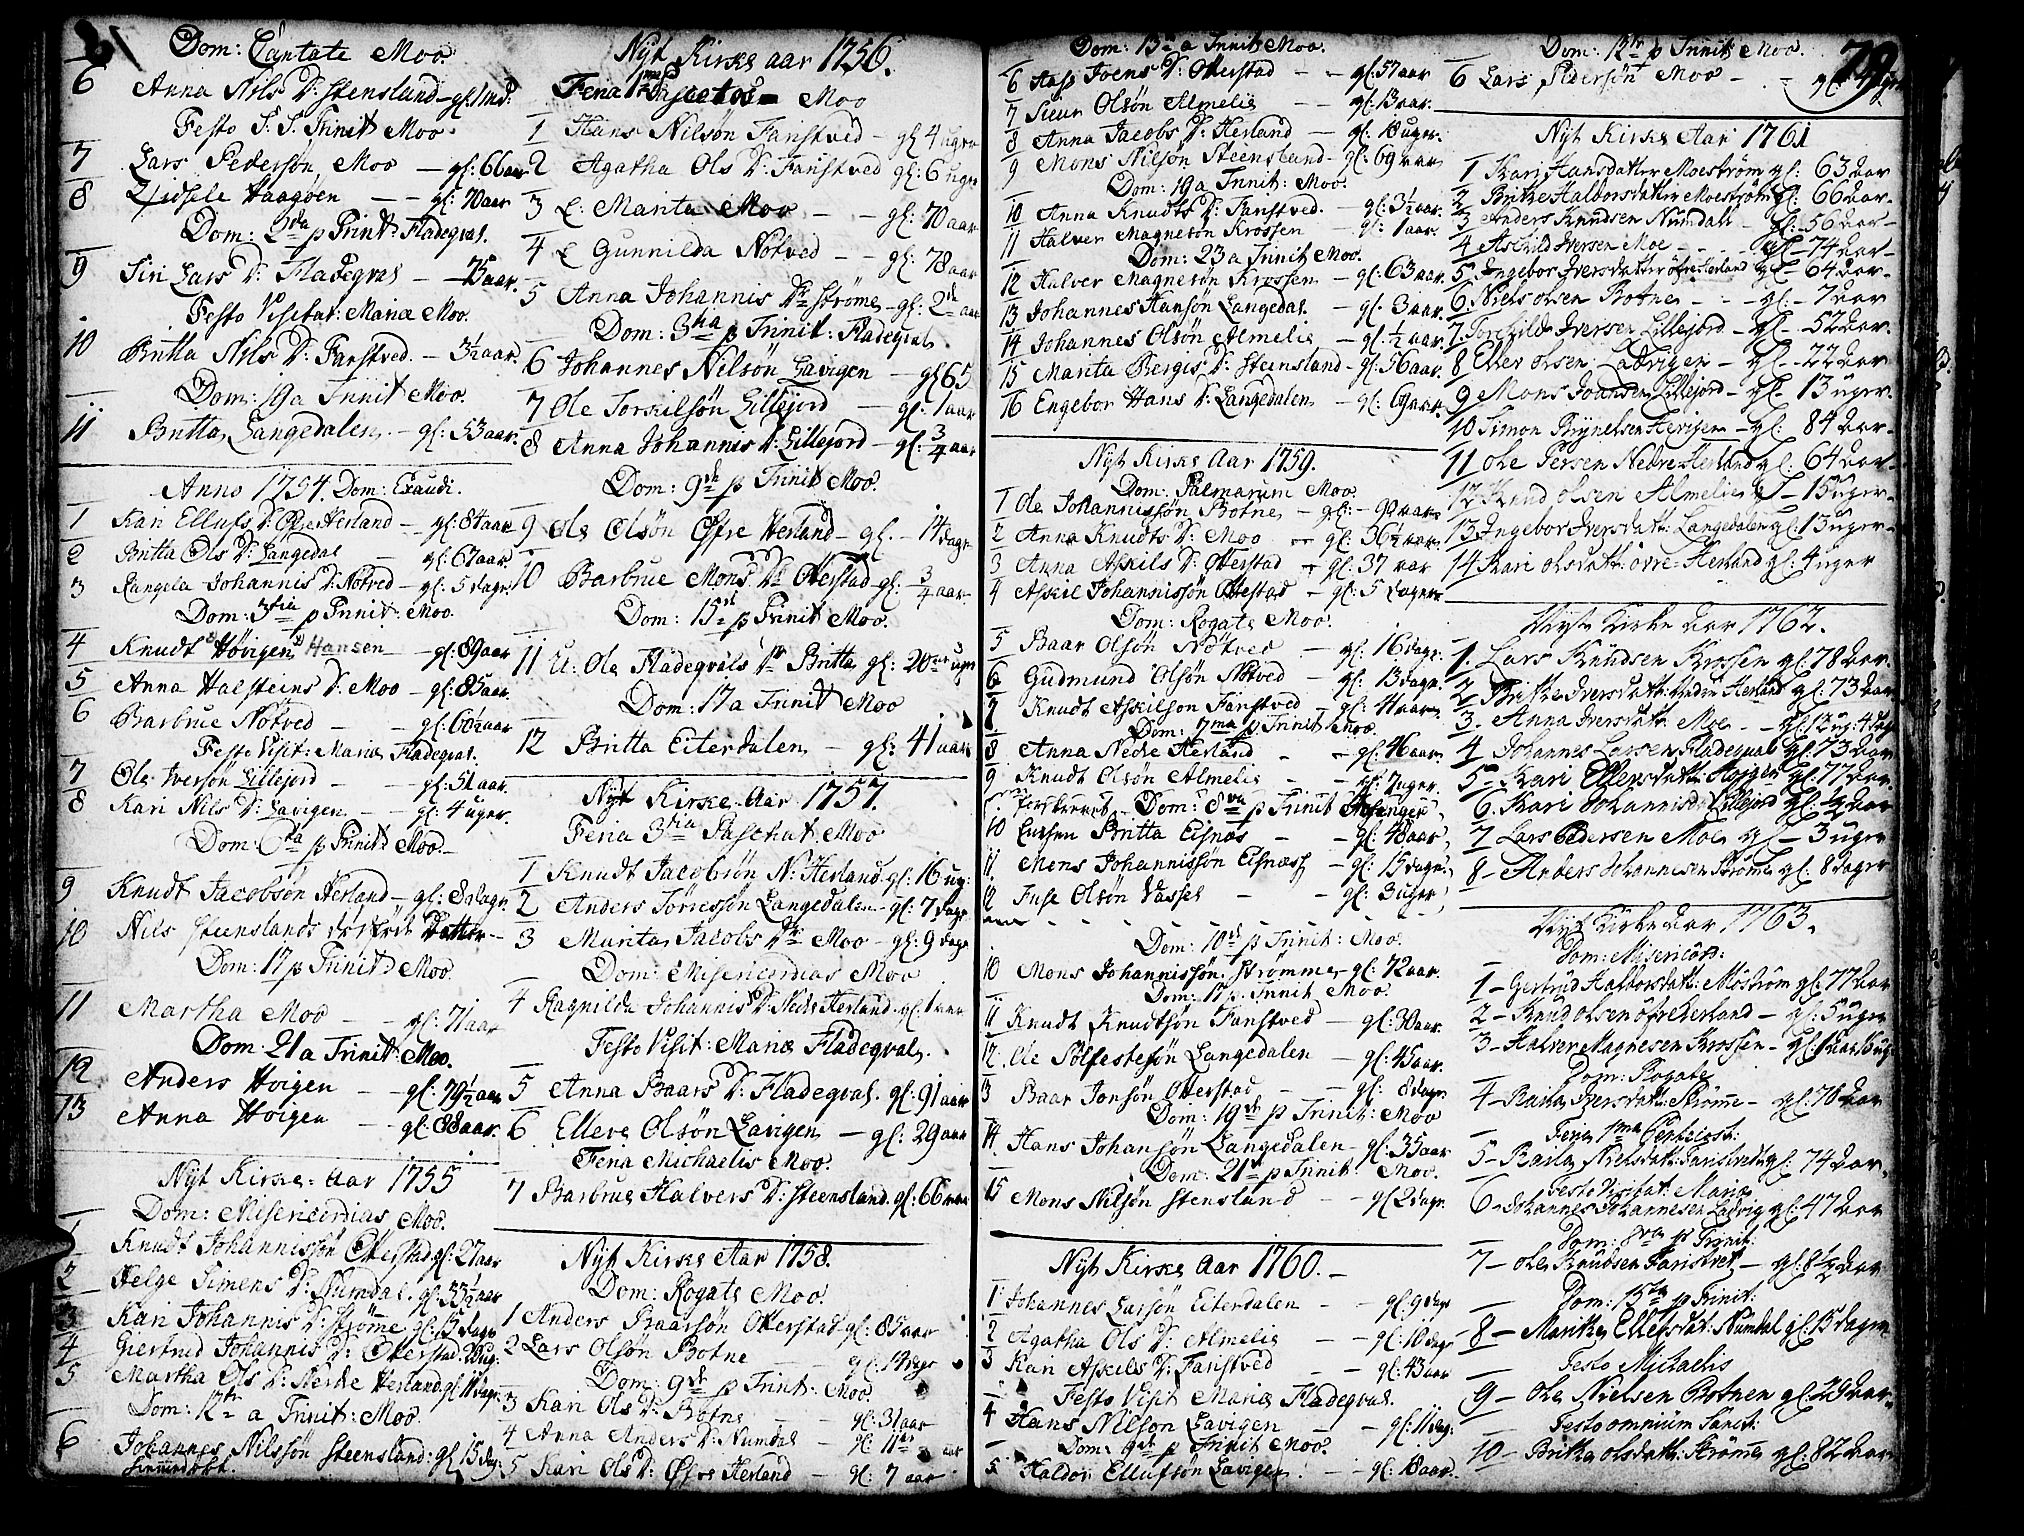 Dom: Cantate Moo.
6 Anna Nils D: Stensland - gl. 1 md:
Festo S. S. Trinit: Moo.
7 Lars Pedersøn Moo - gl: 66 aar
8 Haagøen - - gl: 70 aar
Dom: 2da p Trinit: Fladeqval.
9 Siri Lars D: Fladeqval - 75 aar.
Festo Visitat: Mariæ Moo.
10 Britta Nils D: Farstved. - 3½ aar.
Dom: 19 a Trinit Moo.
11 Britta Langedalen - gl: 53 aar.
Anno 1754. Dom: Exaudi.
1 Kari Ellufs D: Øfre Herland - gl: 84 aar
2 Britta Ols D: Langedal - gl: 67 aar.
3 Rangela Johannis D: Nøtved - gl: 5 dage.
Dom: 3tia p Trinit: Moo.
4 Knudt Høvigen Hansen - gl: 89 aar
5 Anna Halsteins D: Moo - gl: 85 aar.
6 Barbrue Nøtved - - gl: 60½ aar
Festo Visit: Mariæ Fladeqval.
7 Ole Iversøn Lillejord - - gl: 51 aar.
8 Kari Nils D: Lavigen - gl: 4 uger.
Dom: 6ta p Trinit: Moo.
9 Knudt Jacobsøn Herland - gl: 8 dage.
10 Nils Steenslands dødføde Datter -
Dom: 17 p Trinit: Moo.
11 Martha Moo - - gl: 71 aar
Dom: 21 a Trinit: Moo.
12 Anders Høigen - gl: 79½ aar
13 Anna Høigen - gl: 88 aar.
Nyt Kirke-aar 1755
Dom: Misericordias Moo.
1 Knudt Johannissøn Otterstad gl: 27 aar
2 Helge Simens D: Numdal. gl: 33½ aar
3 Kari Johannis D: Strøme gl: 13 dage
4 Giertrud Johannis D: Otterstad. ug:
5 Martha Ols D: Nerdre Herland gl: 11 dage.
Dom: 12te a Trinit: Moo.
6 Johannes Nilssøn Steensland: gl 15 dage
Nyt Kirke aar 1756.
Feria 1ma Moo
1 Hans Nilsøn Farstved - gl 4 ugr
2 Agatha Ols D: Farstved gl: 6 uger
3 E: Marita Moo - - gl: 70 aar
4 E Gunnilda Nøtved - - gl: 78 aar
5 Anna Johannis Dr Strøme - gl: 2 aar
Dom: 3tia p Trinit: Fladeqval.
6 Johannes Nilsøn Lavigen - gl 65
7 Ole Torkilsøn Lillejord - gl: 1 aar
8 Anna Johannis D: Lillejord - gl: 3/4 aar
Dom: 9de p Trinit Moo.
9 Ole Olsøn Øfre Herland - gl. - 14 dage
10 Barbrue Mons Dr Otterstad gl: 3/4 aar.
Dom: 15de p Trinit Moo.
11 U: Ole Fladeqvals Dr Britta gl: 20 ugr
Dom: 17 a Trinit Moo
12 Britta Eiterdalen - gl: 41 aar
Nyt Kirke-Aar 1757.
Feria 3tia Paschat: Moo
1 Knudt Jacobsøn N: Herland gl: 16 ug:
2 Anders Tørressøn Langedalen - gl: 7 dage
3 Marita Jacobs Dr Moo - gl: 9 dage
Dom: Misericordias Moo
4 Ragnilda Johannis D: Nedre Herland. gl: 1 aar
Festo Visit: Mariæ Fladeqval.
5 Anna Baars D: Fladeqval. gl: 91 aar
6 Elleve Olsøn Lavigen - gl: 29 aar
Feria Michaelis Moo.
7 Barbrue Halvers D: Steensland. gl: 66 aar
Nyt Kirke Aar 1758.
Dom: Rogate Moo.
1 Anders Baarsøn Otterstad gl: 85 aar
2 Lars Olsøn Botne gl: 14 dage
Dom: 9de p Trinit: Moo.
3 Kari Ols D: Botne - - gl: 31 aar
4 Anna Anders D: Numdal - gl: 11 aar
5 Kari Ols D: Øfre Herland - gl: 7 aar
Dom: 13de a Trinit Moo.
6 Aase Joens D: Otterstad - - gl: 57 aar
7 Siur Olsøn Almelie - - gl: 13 aar.
8 Anna Jacobs D: Herland - gl: 18 uger.
9 Mons Nilsøn Steensland - gl: 69 aar
Dom: 19 a Trinit: Moo.
10 Anna Knudts D: Farstved. - gl: 3½ aar.
11 Halver Magnesøn Krossen - gl: 1 aar.
Dom: 23 a Trinit Moo.
12 Halver Magnesøn Krossen - gl: 63 aar.
13 Johannes Hansøn Langedal - gl: 3 aar.
14 Johannes Olsøn Almelie - gl: ½ aar.
15 Marita Bergis D: Steensland - gl: 56 aar.
16 Engebor Hans D: Langedalen - gl: 69 aar.
Nyt Kirke Aar 1759.
Dom: Palmarum Moo.
1 Ole Johannissøn Botne - gl: - 92 aar
2 Anna Knudts D: Moo - gl: 36½ aar.
3 Anna Askils D: Otterstad - gl: 37 aar
4 Askil Johannissøn Ottestad - gl: 5 dager
Dom: Rogate Moo.
5 Baar Olsøn Nøtved - gl: 16 dage.
6 Gudmund Olsøn Nøtved - gl: 13 dage.
7 Knudt Askilsøn Farstved - gl: 41 aar
Dom: 7ma p Trinit: Moo.
8 Anna Nedre Herland - gl: 46 aar.
9 Knudt Olsøn Almelie - - gl: 7 uger.
Dom: 8va p Trinit
10 Britta Eisnæs - - gl: 48 aar
11 Mons Johannissøn Eisnæss - gl: 15 dage
12 Fuse Olsøn Vassel - - gl: 3 uger
Dom: 10de p Trinit: Moo.
10 Mons Johannissøn Strømme gl: 72 aar.
Dom: 17 p. Trinit Moo.
11 Knudt Knudtsøn Farstved - gl: 30 aar.
12. Ole Solfestesøn Langedalen - gl: 45 aar.
13 Baar Jonsøn Otterstad - - gl: 8 dage
Dom: 19de p Trinit: Moo
14 Hans Johansøn Langedalen - gl: 35 aar
Dom: 21de p Trinit Moo.
15 Mons Nilsøn Stensland - - gl 2 dage.
Nyt Kirke Aar 1760. -
1 Johannes Larsøn Eiterdalen - - gl: 9 dage
2 Agatha Ols D: Almelie - - gl: 10 dage
3 Kari Askils D: Farstved - gl: 43 aar
Festo Visit Mariæ Fladeqval.
4 Hans Nilsøn Lavigen - gl: 11 dag:
Dom: 9de p Trinit Moo.
5 Haldor Ellufsøn Lavigen - - gl: 18 aar.
Dom: 12te p Trinit: Moo. 79
6 Lars Pedersøn Moo - -
Nyt Kirke Aar 1761
1 Kari Hansdatter Moestrøm gl: 63 aar
2 Britte Haldorsdatter Moestrøm gl: 66 aar.
3 Anders Knudsen Numdal gl: - 56 aar -
4 Askild Iversen Moe - - - gl - 74 aar -
5. Ingebor Iversdatter øfre Herland gl - 64 aar.
6 Niels Olsen Botne - - - gl. - 7 aar
7. Torchild Iversen Lillejord - gl - 52 aar -
8 Elver olsen Ladvigen - gl. - 22 aar
9 Mons Joansen Lillejord - gl - 13 uger.
10 Simon Brynelsen - gl: 84 aar -
11 Ole Persen Nedre Herland gl: 64 aar -
12 Knud Olsen Almelie gl - 15 uger -
13 Ingebor Iversdatr: Langedalen gl: 13 uger -
14 Kari Olsdatr: øvre Herland gl: 4 uger
Nyt Kirke Aar 1762.
1. Lars Knudsen Krossen gl: 78 aar.
2 Britte Iversdatr: Nedre Herland gl: 73 aar
3. Anna Iversdatr: Moe - - gl: 12 ug: 4 dag
4 Johannes Larsen Fladequal gl: 73 aar
5 - Kari Ellersdatr: Høigen gl: 77 aar
6. Kari Johannisd: Lillejord gl: ½ aar
7 Lars Pedersen Moe gl - 3 uger
8 - Anders Johannesen Strøme gl: 8 dager
Nyt Kirke Aar 1763.
Dom: Misericord:
1 - Gertrud Haldorsdatr: Mostrøm gl: 77 aar
2 - Knud Olsen øfre Herland - gl: 5 uger
3 - Halver Magnesen Krossen -
Dom: Rogate
4 - Iversdatr: Strøme - gl: 78 aar
Feria 1ma Pentecost:
5 - Nielsdatr: Faristvedt gl: 74 aar.
Festo Visitat: Mariæ
6 - Johannes Johannesen Ladvig gl: 47 aar
Dom: p Trinit:
7 - Ole Knudsen Faristvet - gl: 8½ aar
Dom: 15ta p Trinit:
8 - Marithe Ellefsdat: Numdal gl: 15 dager
Festo Michaelis
9 - Ole Nielsen Botnen gl: 29 aar -
Festo omnium Sanct:
10 - Britha Olsdatr: Strømme gl: 82 aar